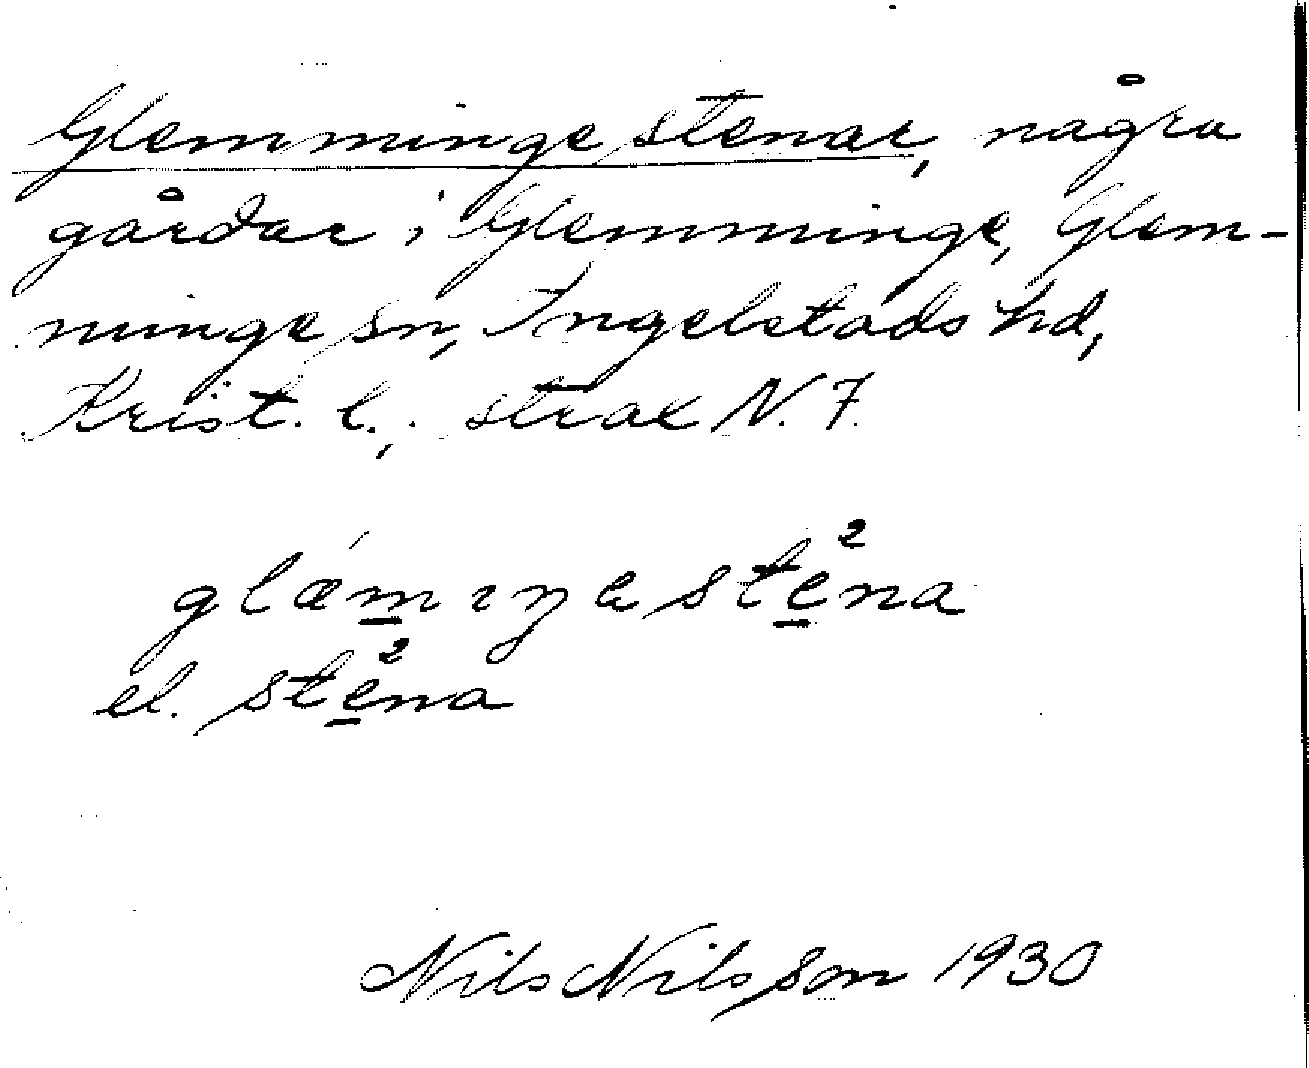 Glemminge stenar, några
gårdar i Glemminge, Glem-
minge sn, Ingelstads hd,
Krist. l., strax N. f.
glæ´m̲ıŋa ste̲²na
el. ste̲²na
Nils Nilsson 1930